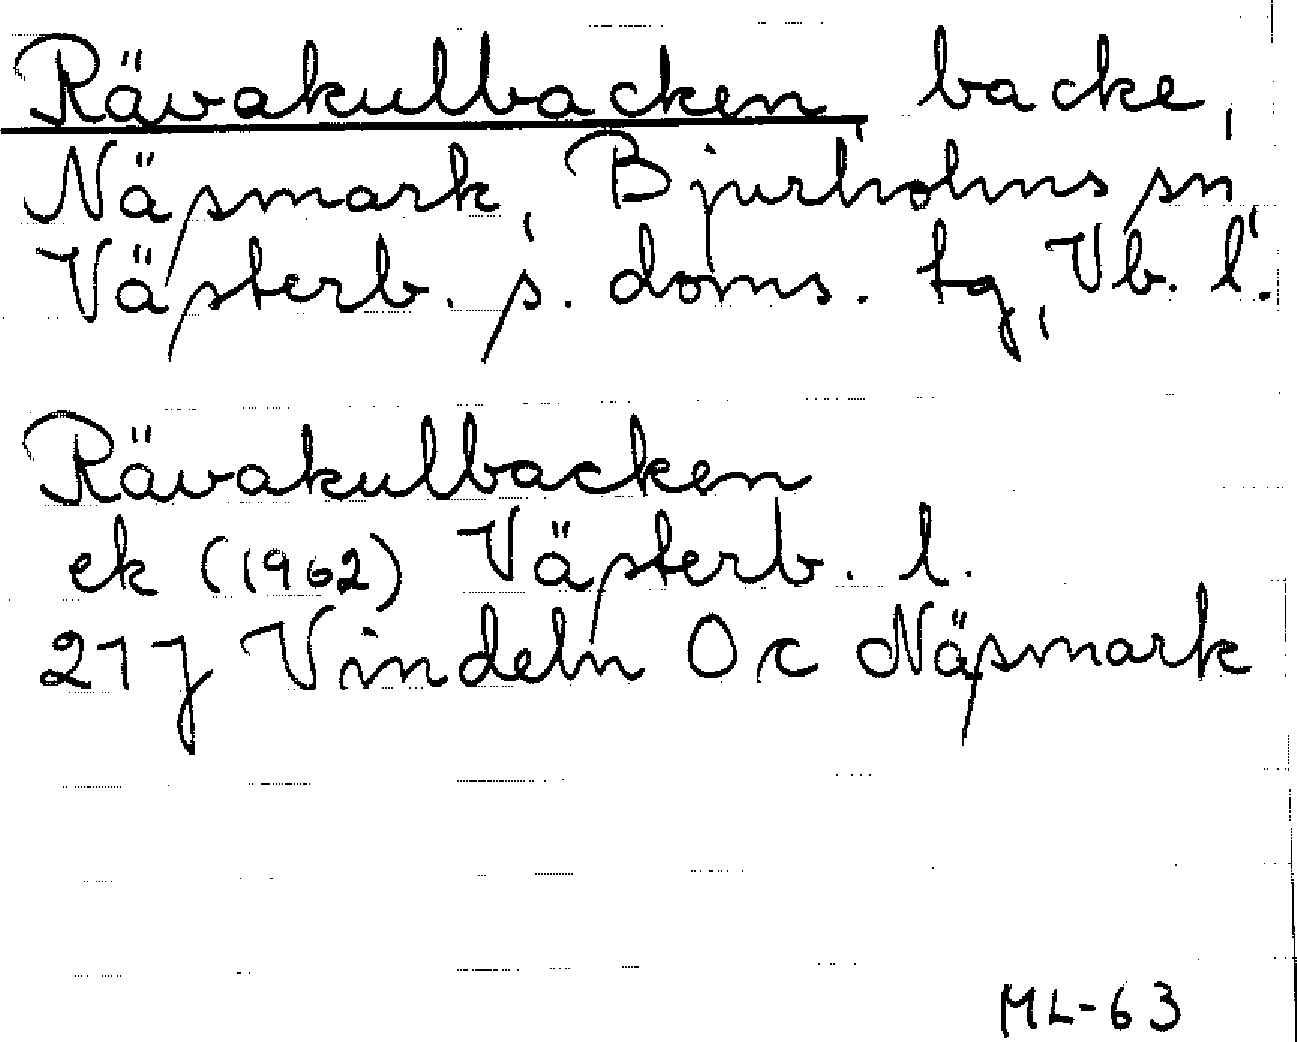 Rävakulbacken, backe,
Näsmark, Bjurholms sn,
Västerb. s. doms. tg, Vb. l.
Rävakulbacken
ek (1962) Västerb. l.
21 J Vindeln O c Näsmark
ML-63